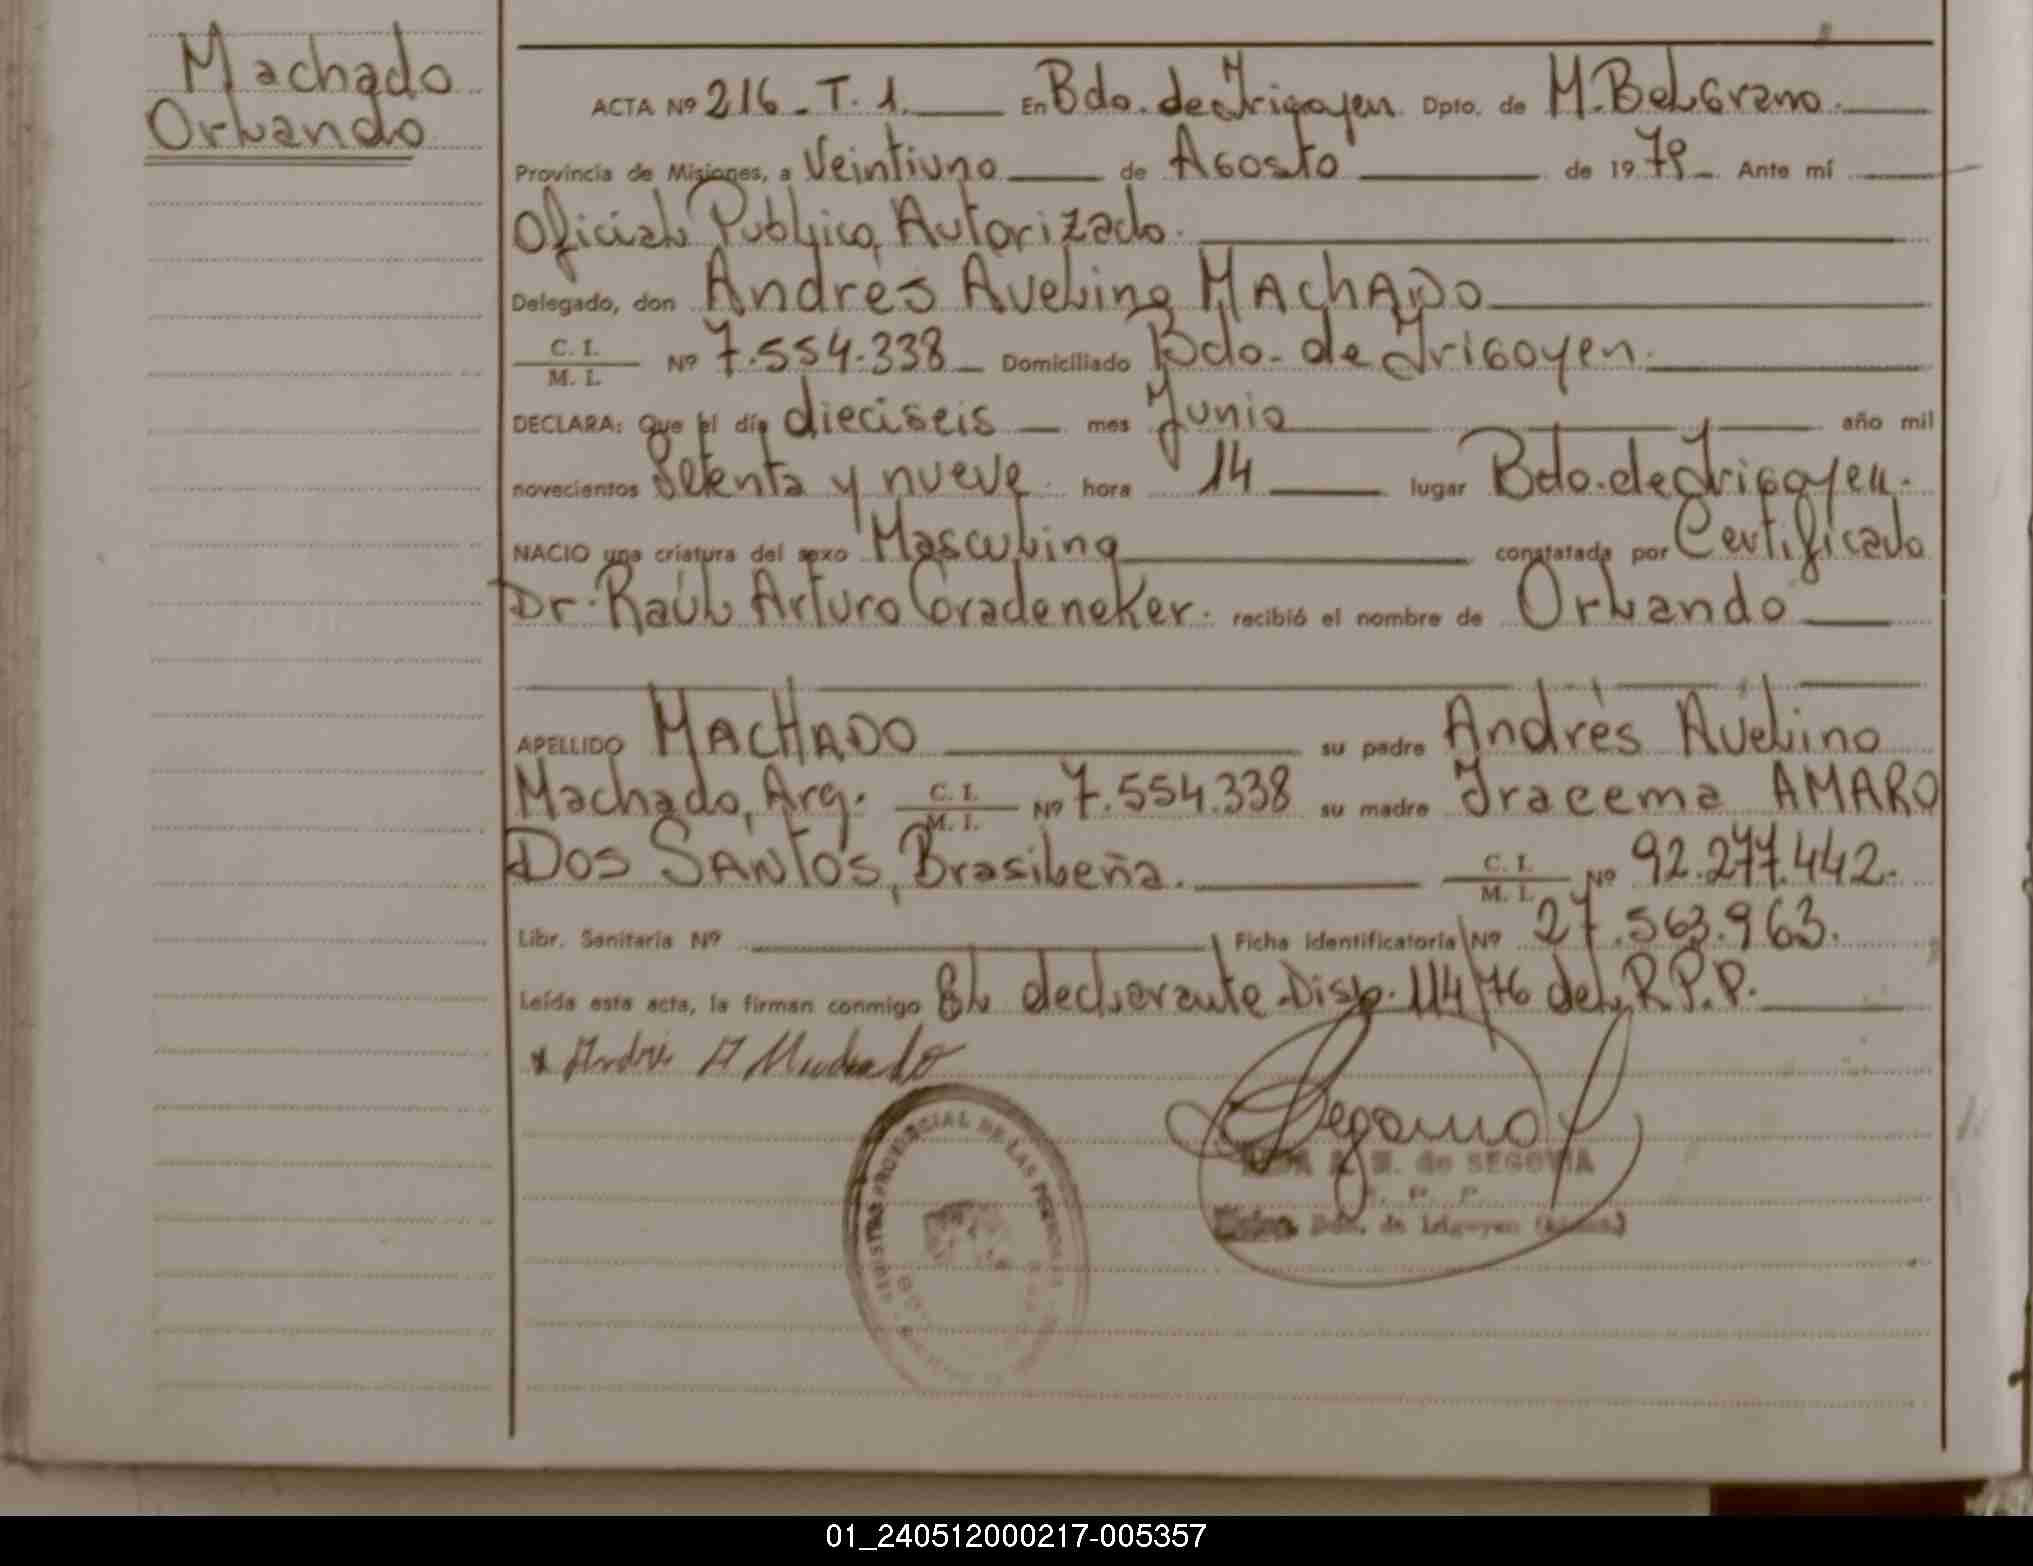 Machado
Orlando
ACTA Nº 216 - T. 1. En Bdo. de Irigoyen Dpto. de M. Belgrano.
Provincia de Misiones, a Veintiuno de Agosto de 19 79 Ante mí
Oficial Publico, Autorizado.
Delegado, don Andrés Avelino MACHADO
C. I.
M. I. Nº 7.554.338 Domiciliado Bdo. de Irigoyen.
DECLARA: Que el día dieciseis mes Junio año mil
novecientos Setenta y nueve hora 14 lugar Bdo. de Irigoyen.
NACIO una criatura del sexo Masculino constatada por Certificado
Dr. Raúl Arturo Gradeneker. recibió el nombre de Orlando
APELLIDO MACHADO su padre Andrés Avelino
Machado, Arg. C. I.
M. I. Nº 7.554.338 su madre Iracema AMARO
DOS SANTOS, Brasileña. C. I.
M. I. Nº 92.277.442.
Libr. Sanitaria Nº Ficha Identificatoria Nº 27.563.963.
Leída esta acta, la firman conmigo El declarante. Disp. 114/76 del R.P.P.
x Andrés A Machado
Segovia
de SEGOVIA
P. P.
Bdo. de Irigoyen
REGISTRO PROVINCIAL DE LAS PERSONAS
01_240512000217-005357